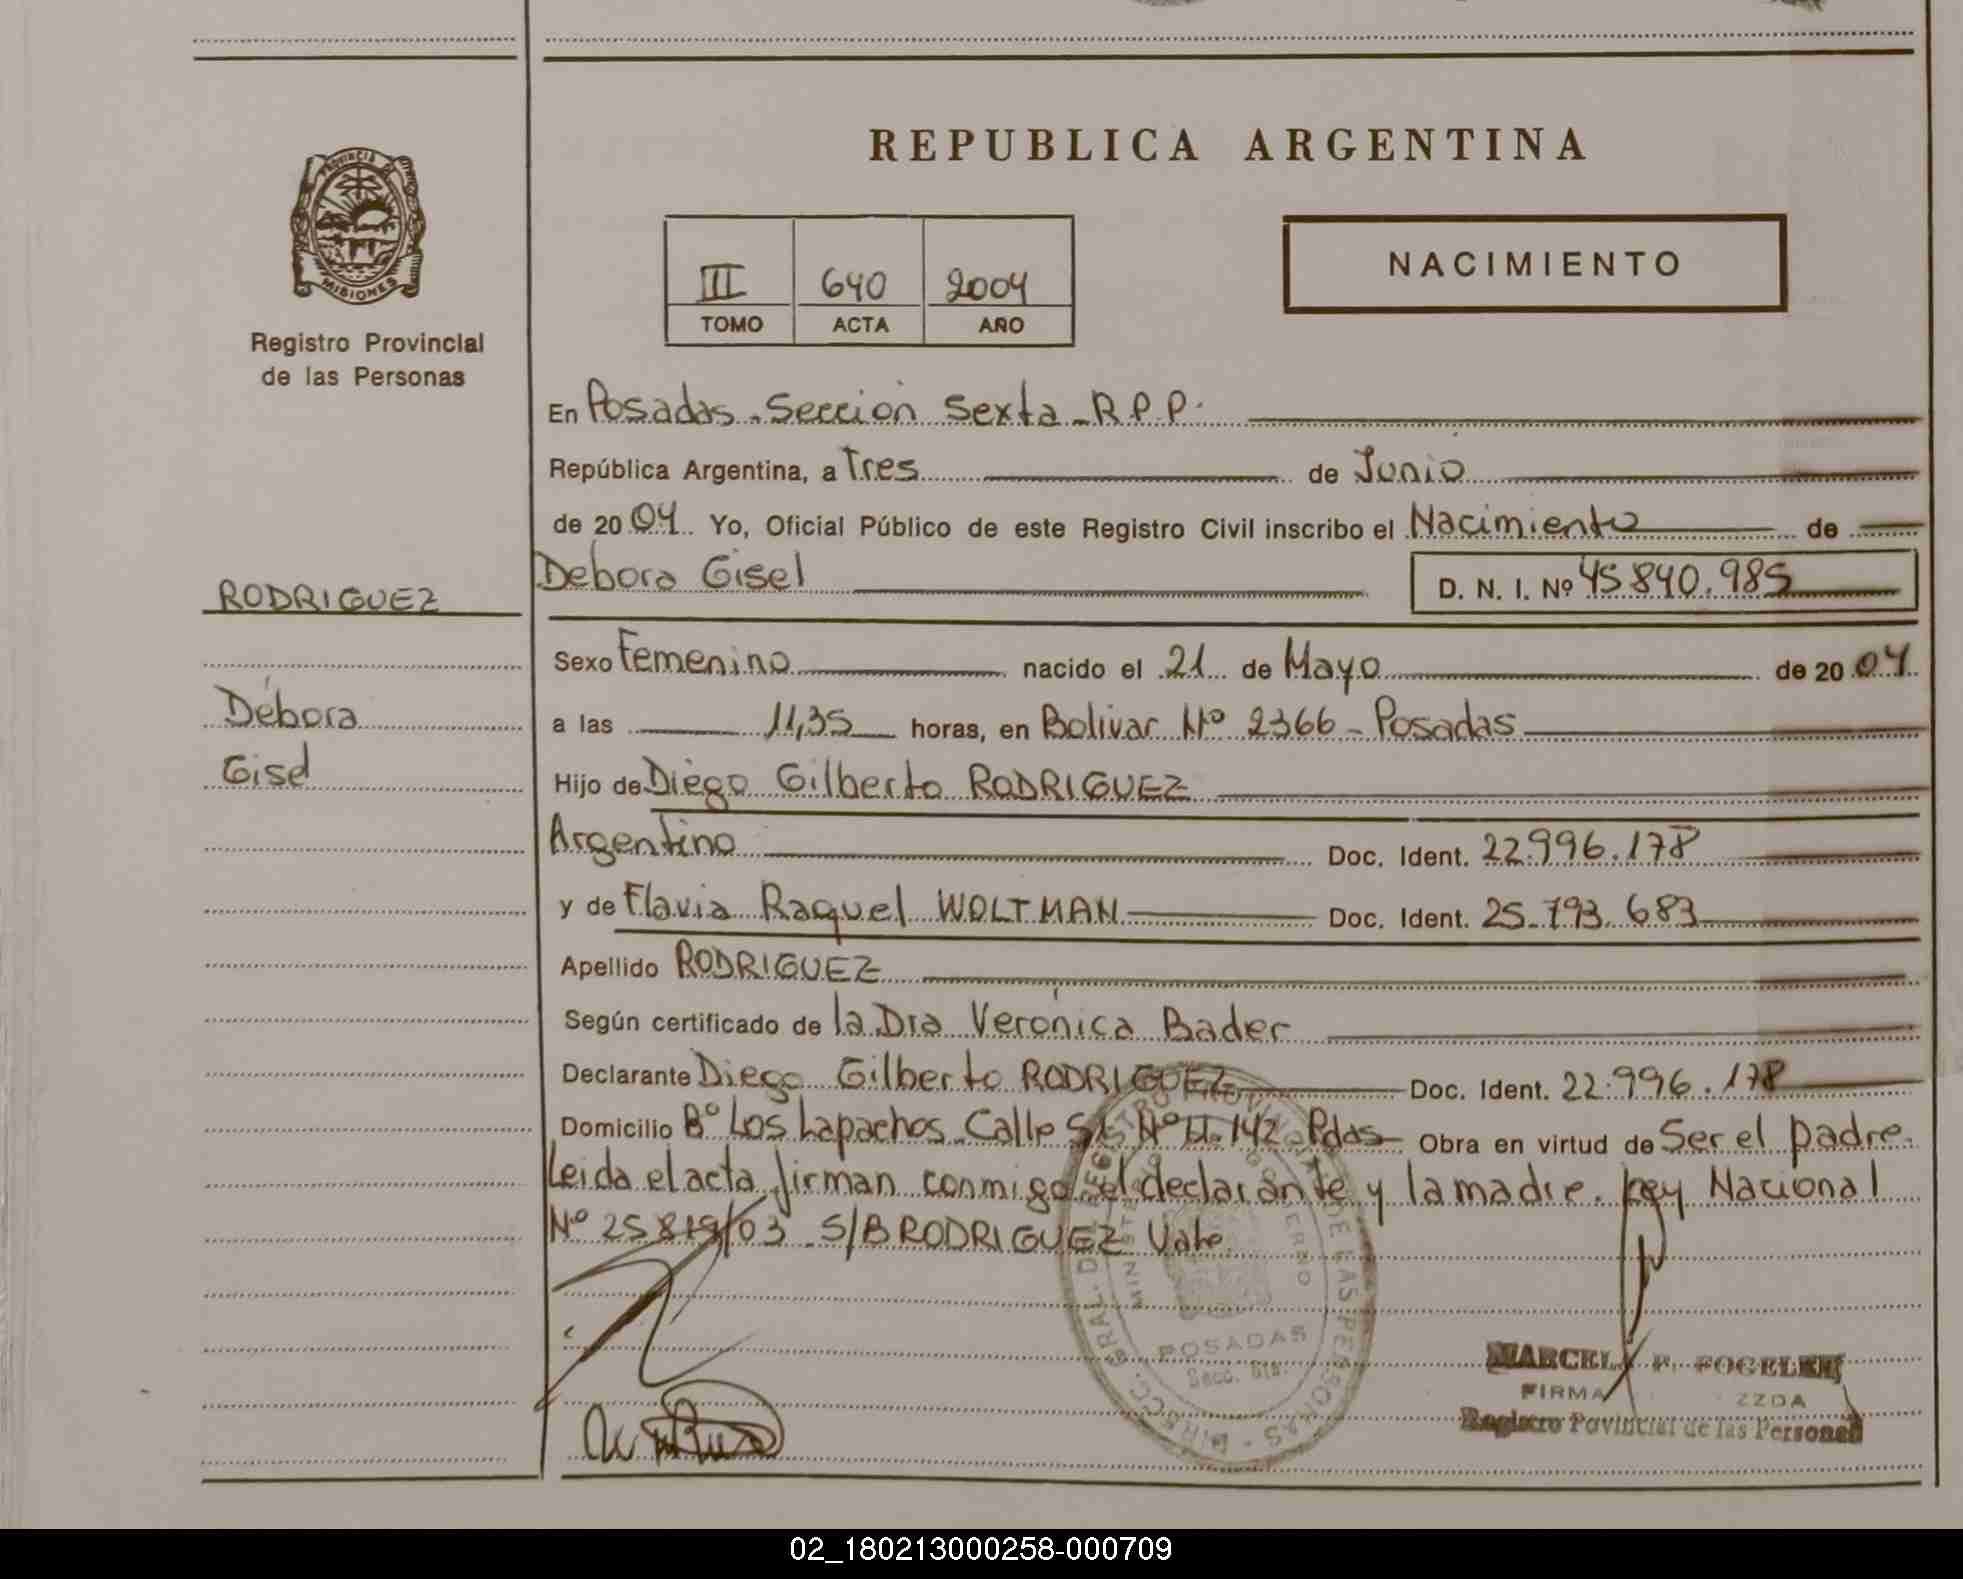 REPUBLICA ARGENTINA
PROVINCIA DE
MISIONES
Registro Provincial
de las Personas
III 640 2004
TOMO ACTA AÑO
NACIMIENTO
En Posadas - Sección Sexta - R.P.P.
República Argentina, a Tres de Junio
de 2004. Yo, Oficial Público de este Registro Civil inscribo el Nacimiento de
RODRIGUEZ
Debora Gisel D. N. I. Nº 45 840.985
Sexo Femenino nacido el 21 de Mayo de 2004
Débora
a las 11,35 horas, en Bolivar Nº 2366 - Posadas
Gisel
Hijo de Diego Gilberto RODRIGUEZ
Argentino Doc. Ident. 22.996.178
y de Flavia Raquel WOLTMAN Doc. Ident. 25.793.683
Apellido RODRIGUEZ
Según certificado de la Dra Verónica Bader
Declarante Diego Gilberto RODRIGUEZ Doc. Ident. 22.996.178
Domicilio Bº Los Lapachos - Calle Nº 142 - Pdas Obra en virtud de Ser el padre.
Leida el acta firman conmigo el declarante y la madre. Ley Nacional
Nº 25 819/03 - S/B RODRIGUEZ Vale.
POSADAS
Secc. 6ta.
FOGELER
FIRMA
Registro Povincial de las Personas
02_180213000258-000709